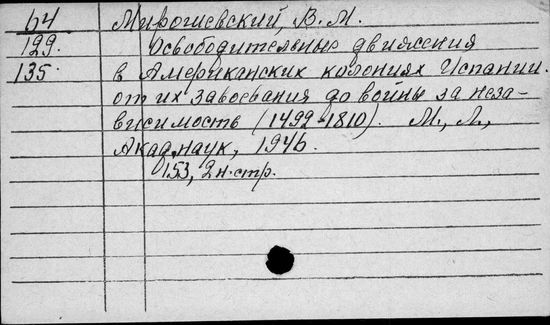 64 Мирошевский, В. М.
129. Освободительные движения
135. в Американских колониях Испании.
от их завоевания до войны за неза-
висимость (1492-1810). М., Л.,
Акад. наук, 1946.
153, 2 н. стр.